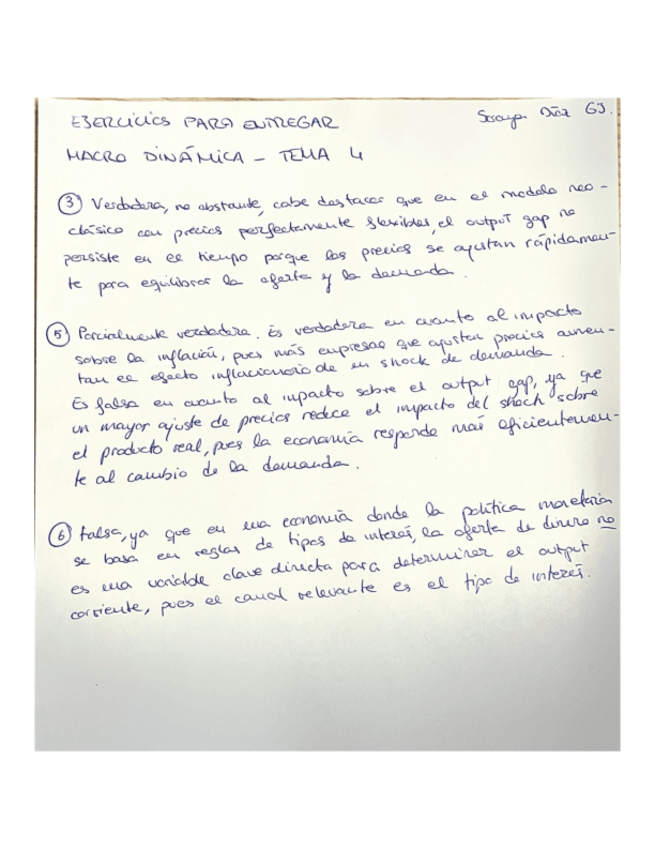 EJERCICIOS PARA ENTREGAR
Soraya Díaz G3.
MACRO DINÁMICA - TEMA 4
3 Verdadera, no obstante, cabe destacar que en el modelo neo-
clásico con precios perfectamente flexibles, el output gap no
persiste en el tiempo porque los precios se ajustan rápidamen-
te para equilibrar la oferta y la demanda.
5 Parcialmente verdadera. Es verdadera en cuanto al impacto
sobre la inflación, pues más empresas que ajustan precios aumen-
tan el efecto inflacionario de un shock de demanda.
Es falsa en cuanto al impacto sobre el output gap, ya que
un mayor ajuste de precios reduce el impacto del shock sobre
el producto real, pues la economía responde más eficientemen-
te al cambio de la demanda.
6 Falsa, ya que en una economía donde la política monetaria
se basa en reglas de tipos de interés, la oferta de dinero no
es una variable clave directa para determinar el output
corriente, pues el canal relevante es el tipo de interés.